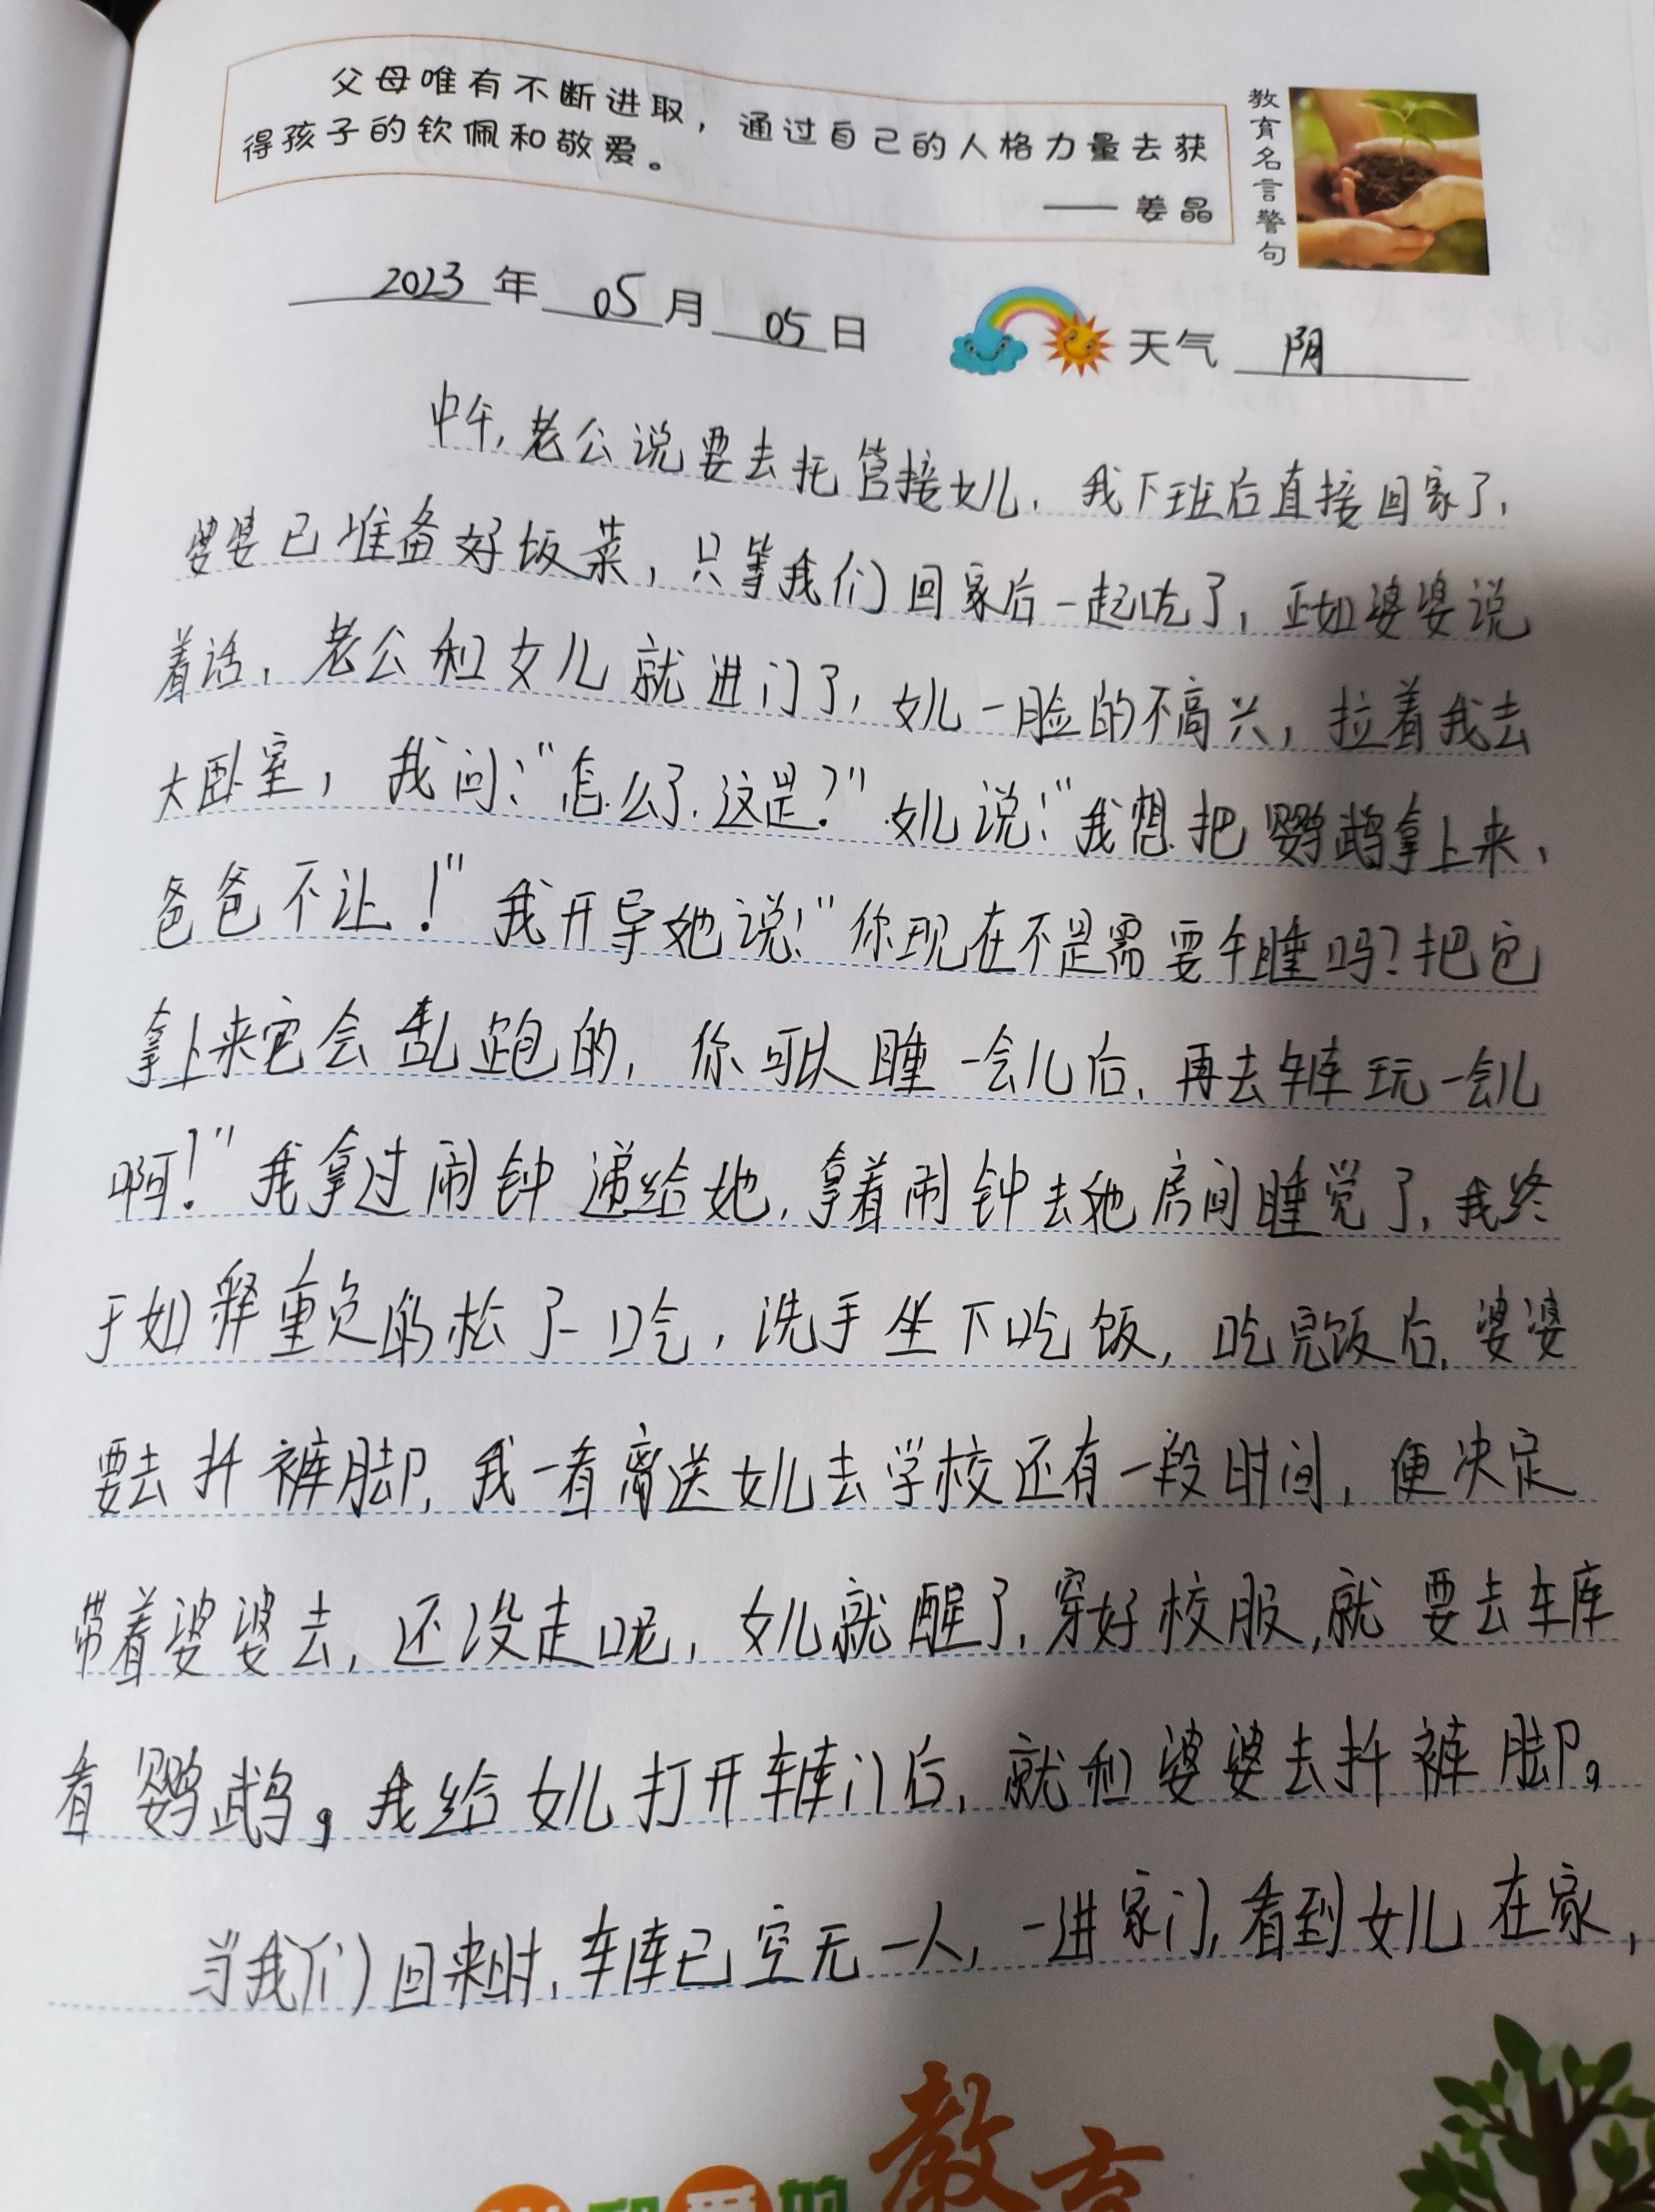 父母唯有不断进取，通过自己的人格力量去获
得孩子的钦佩和敬爱。
——姜晶
教育名言警句
2023年05月05日 天气 阴
中午,老公说要去托管接女儿,我下班后直接回家了,
婆婆已准备好饭菜,只等我们回家后一起吃了,正如婆婆说
着话,老公和女儿就进门了,女儿一脸的不高兴,拉着我去
大卧室,我问:“怎么了,这是?”女儿说:“我想把鹦鹉拿上来,
爸爸不让!”我开导她说:“你现在不是需要午睡吗?把它
拿上来它会乱跑的,你可以睡一会儿后,再去车库玩一会儿
啊!”我拿过闹钟递给她,拿着闹钟去她房间睡觉了,我终
于如释重负的松了一口气,洗手坐下吃饭,吃完饭后,婆婆
要去扦裤脚,我一看离送女儿去学校还有一段时间,便决定
带着婆婆去,还没走呢,女儿就醒了,穿好校服,就要去车库
看鹦鹉。我给女儿打开车库门后,就和婆婆去扦裤脚。
当我们回来时,车库已空无一人,一进家门,看到女儿在家,
爱的教育